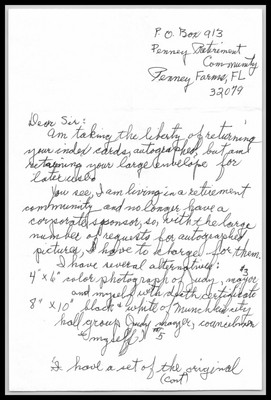 P.O. Box 913
Penney Retirement
Community
Penney Farms, FL
32079
Dear Sir:
Am taking the liberty of returning
your index cards, autographed, but am
retaining your large envelope for
later use.
You see, I am living in a retirement
community and no longer have a
corporate sponsor, so, with the large
number of requests for autographed
pictures, I have to charge for them.
I have several alternatives:
4" x 6" color photograph of Judy, mayor
and myself with death certificate $3
8" x 10" black & white of Munchkin city
hall group (Judy, mayor, councilmen
& myself) $5
I have a set of the original
(cont)